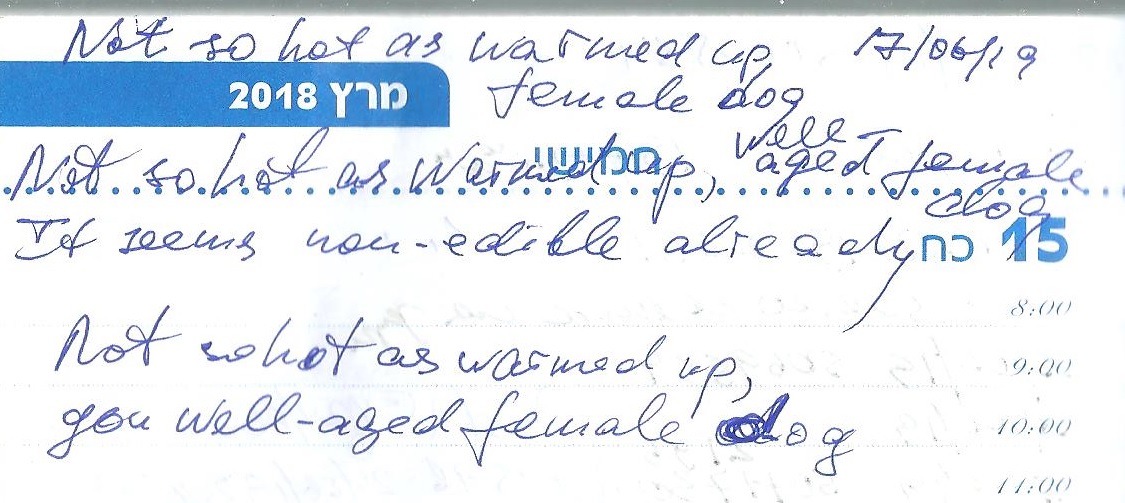 Not so hot as warmed up, 17/06/19
female dog
מרץ 2018
חמישי
well-
Not so hot as warmed up, aged female
dog
It seems non-edible already
כח 15
8:00
Not so hot as warmed up,
9:00
you well-aged female dog
10:00
11:00